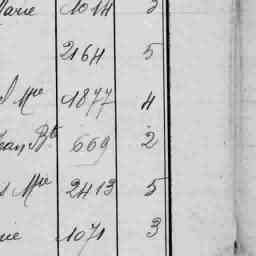 Marie 1014 3
2164 5
Mie 1877 4
Jean Bte 669 2
Mie 2413 5
1071 3